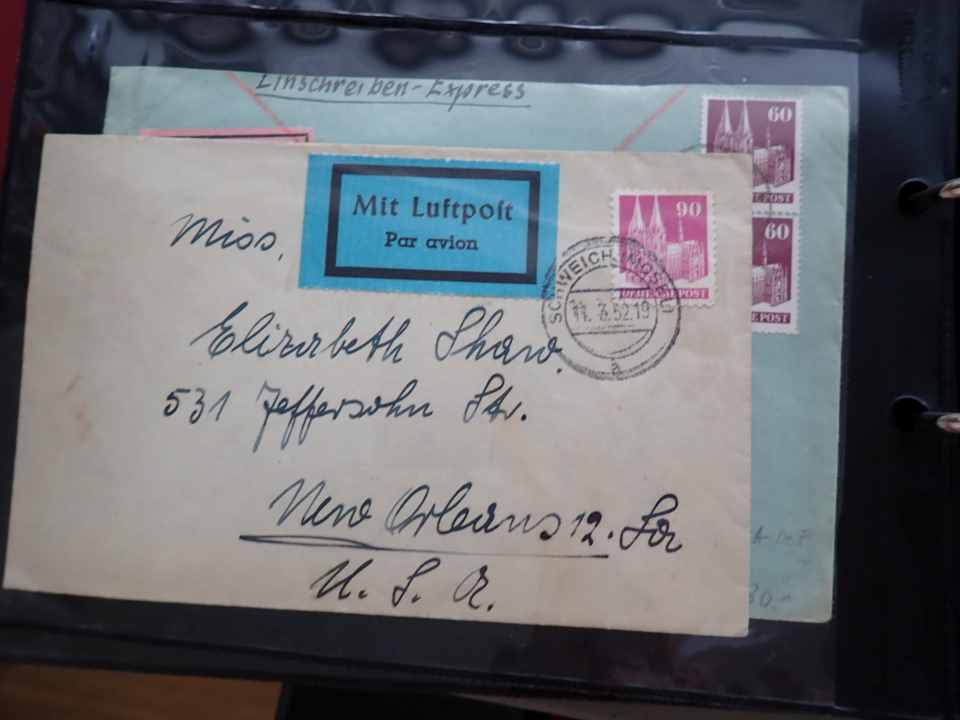 Einschreiben-Express
60
60
E POST
E POST
Mit Luftpost
Par avion
90
DEUTSCHE POST
SCHWEICH (MOSEL)
52.19
a
Miss,
Elizabeth Shaw.
531 Jeffersohn Str.
New Orleans 12. La
U. S. A.